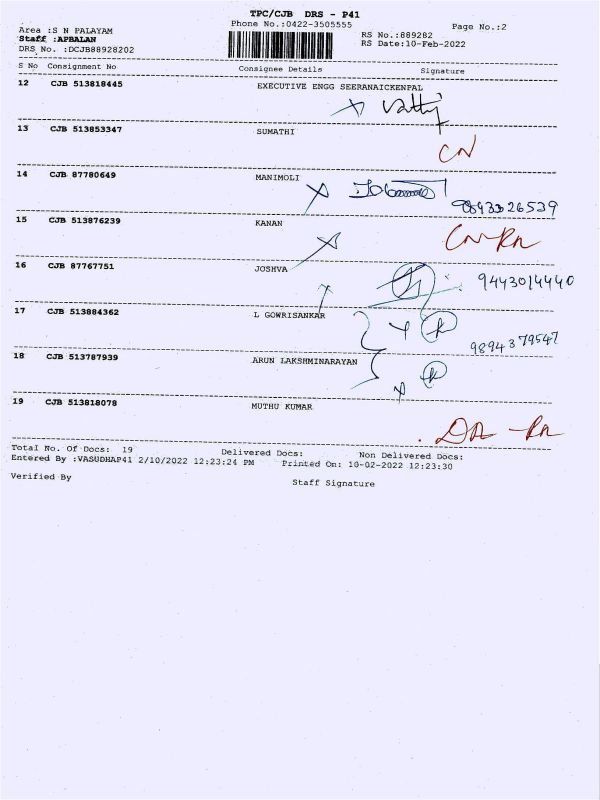 TPC/CJB DRS - P41
Area :S N PALAYAM Phone No.:0422-3505555 Page No.:2
Staff :APBALAN RS No.:889282
DRS No. :DCJB88928202 RS Date:10-Feb-2022
S No Consignment No Consignee Details Signature
12 CJB 513818445 EXECUTIVE ENGG SEERANAICKENPAL
13 CJB 513853347 SUMATHI
CN
14 CJB 87780649 MANIMOLI
9893326539
15 CJB 513876239 KANAN
CN-RN
16 CJB 87767751 JOSHVA
9443014440
17 CJB 513884362 L GOWRISANKAR
9894379547
18 CJB 513787939 ARUN LAKSHMINARAYAN
19 CJB 513818078 MUTHU KUMAR
Total No. Of Docs: 19 Delivered Docs: Non Delivered Docs:
Entered By :VASUDHAP41 2/10/2022 12:23:24 PM Printed On: 10-02-2022 12:23:30
Verified By Staff Signature